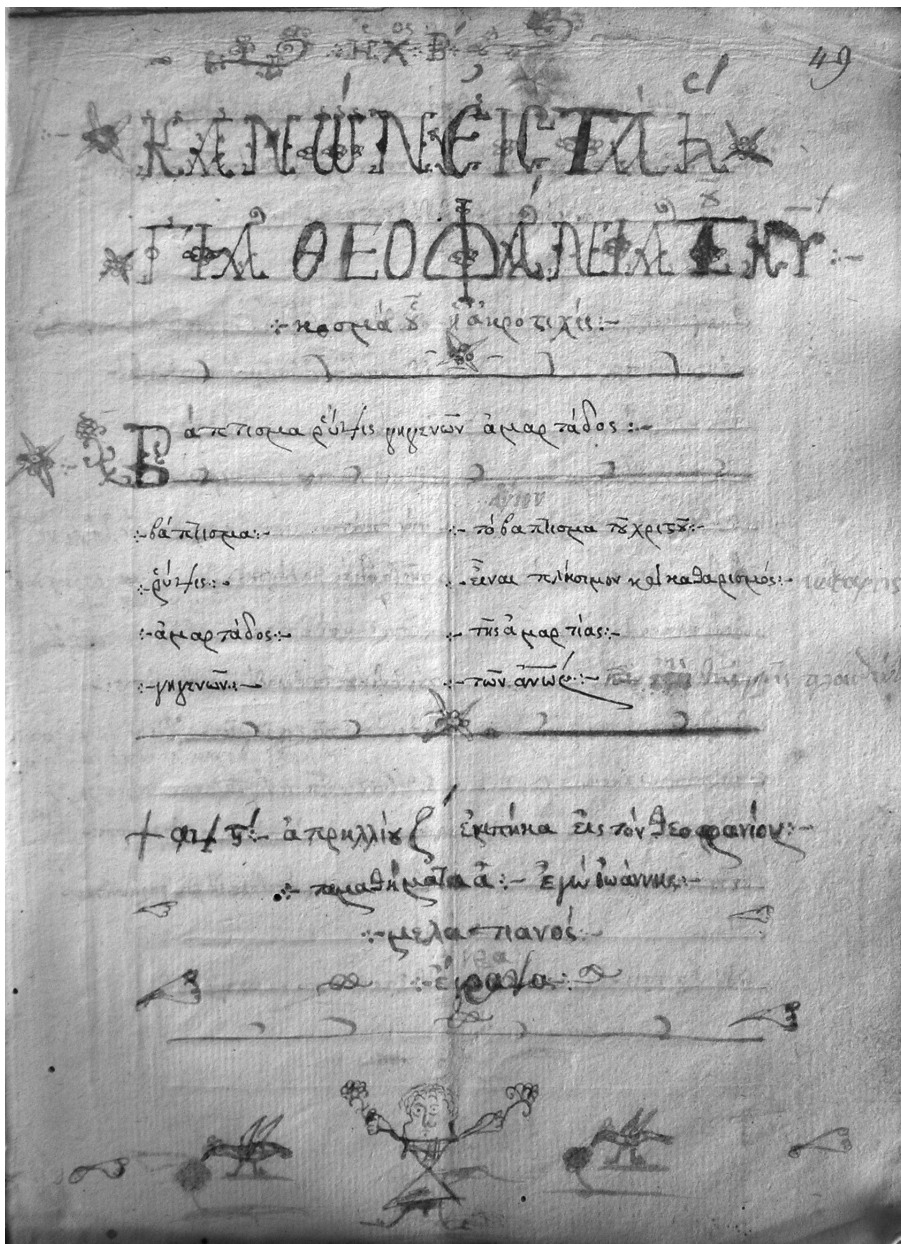 ἦχος Β΄
49
ΚΑΝΩΝ ΕΙΣ ΤΑ Ἁ
ΓΙΑ ΘΕΟΦΑΝΕΙΑ ΤȢ ΚΥ
κοσμᾶ ȣ̃ ἡ ἀκροτιχίς:-
Βάπτισμα ῥύψις γηγενῶν ἁμαρτάδος:-
βάπτισμα:- τὸ βάπτισμα τοῦ χριστοῦ:-
ῥύψις:- εἶναι πλήσιμον καὶ καθαρισμός:-
ἁμαρτάδος:- τῆς ἁμαρτίας:-
γηγενῶν:- τῶν ἀνων:-
ἀπρηλλίου ζ΄ ἐμπήκα εἰς τὸν θεοφανίον:-
παμαθήματα ἃ:- ἐγὼ Ἰωάννης:-
μελαπιανός:-
ἔγραψα:-